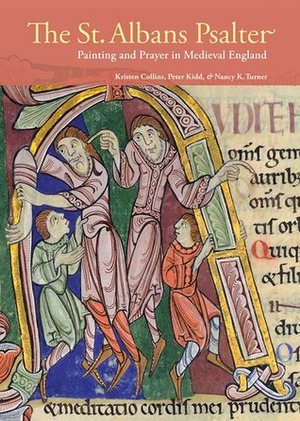 The St. Albans Psalter
Painting and Prayer in Medieval England
Kristen Collins, Peter Kidd, & Nancy K. Turner
UDITE H
om̅s gen
auribꝰ
om̅s q
tis orb
Quiq
si
&meditatio cordis mei prudenti